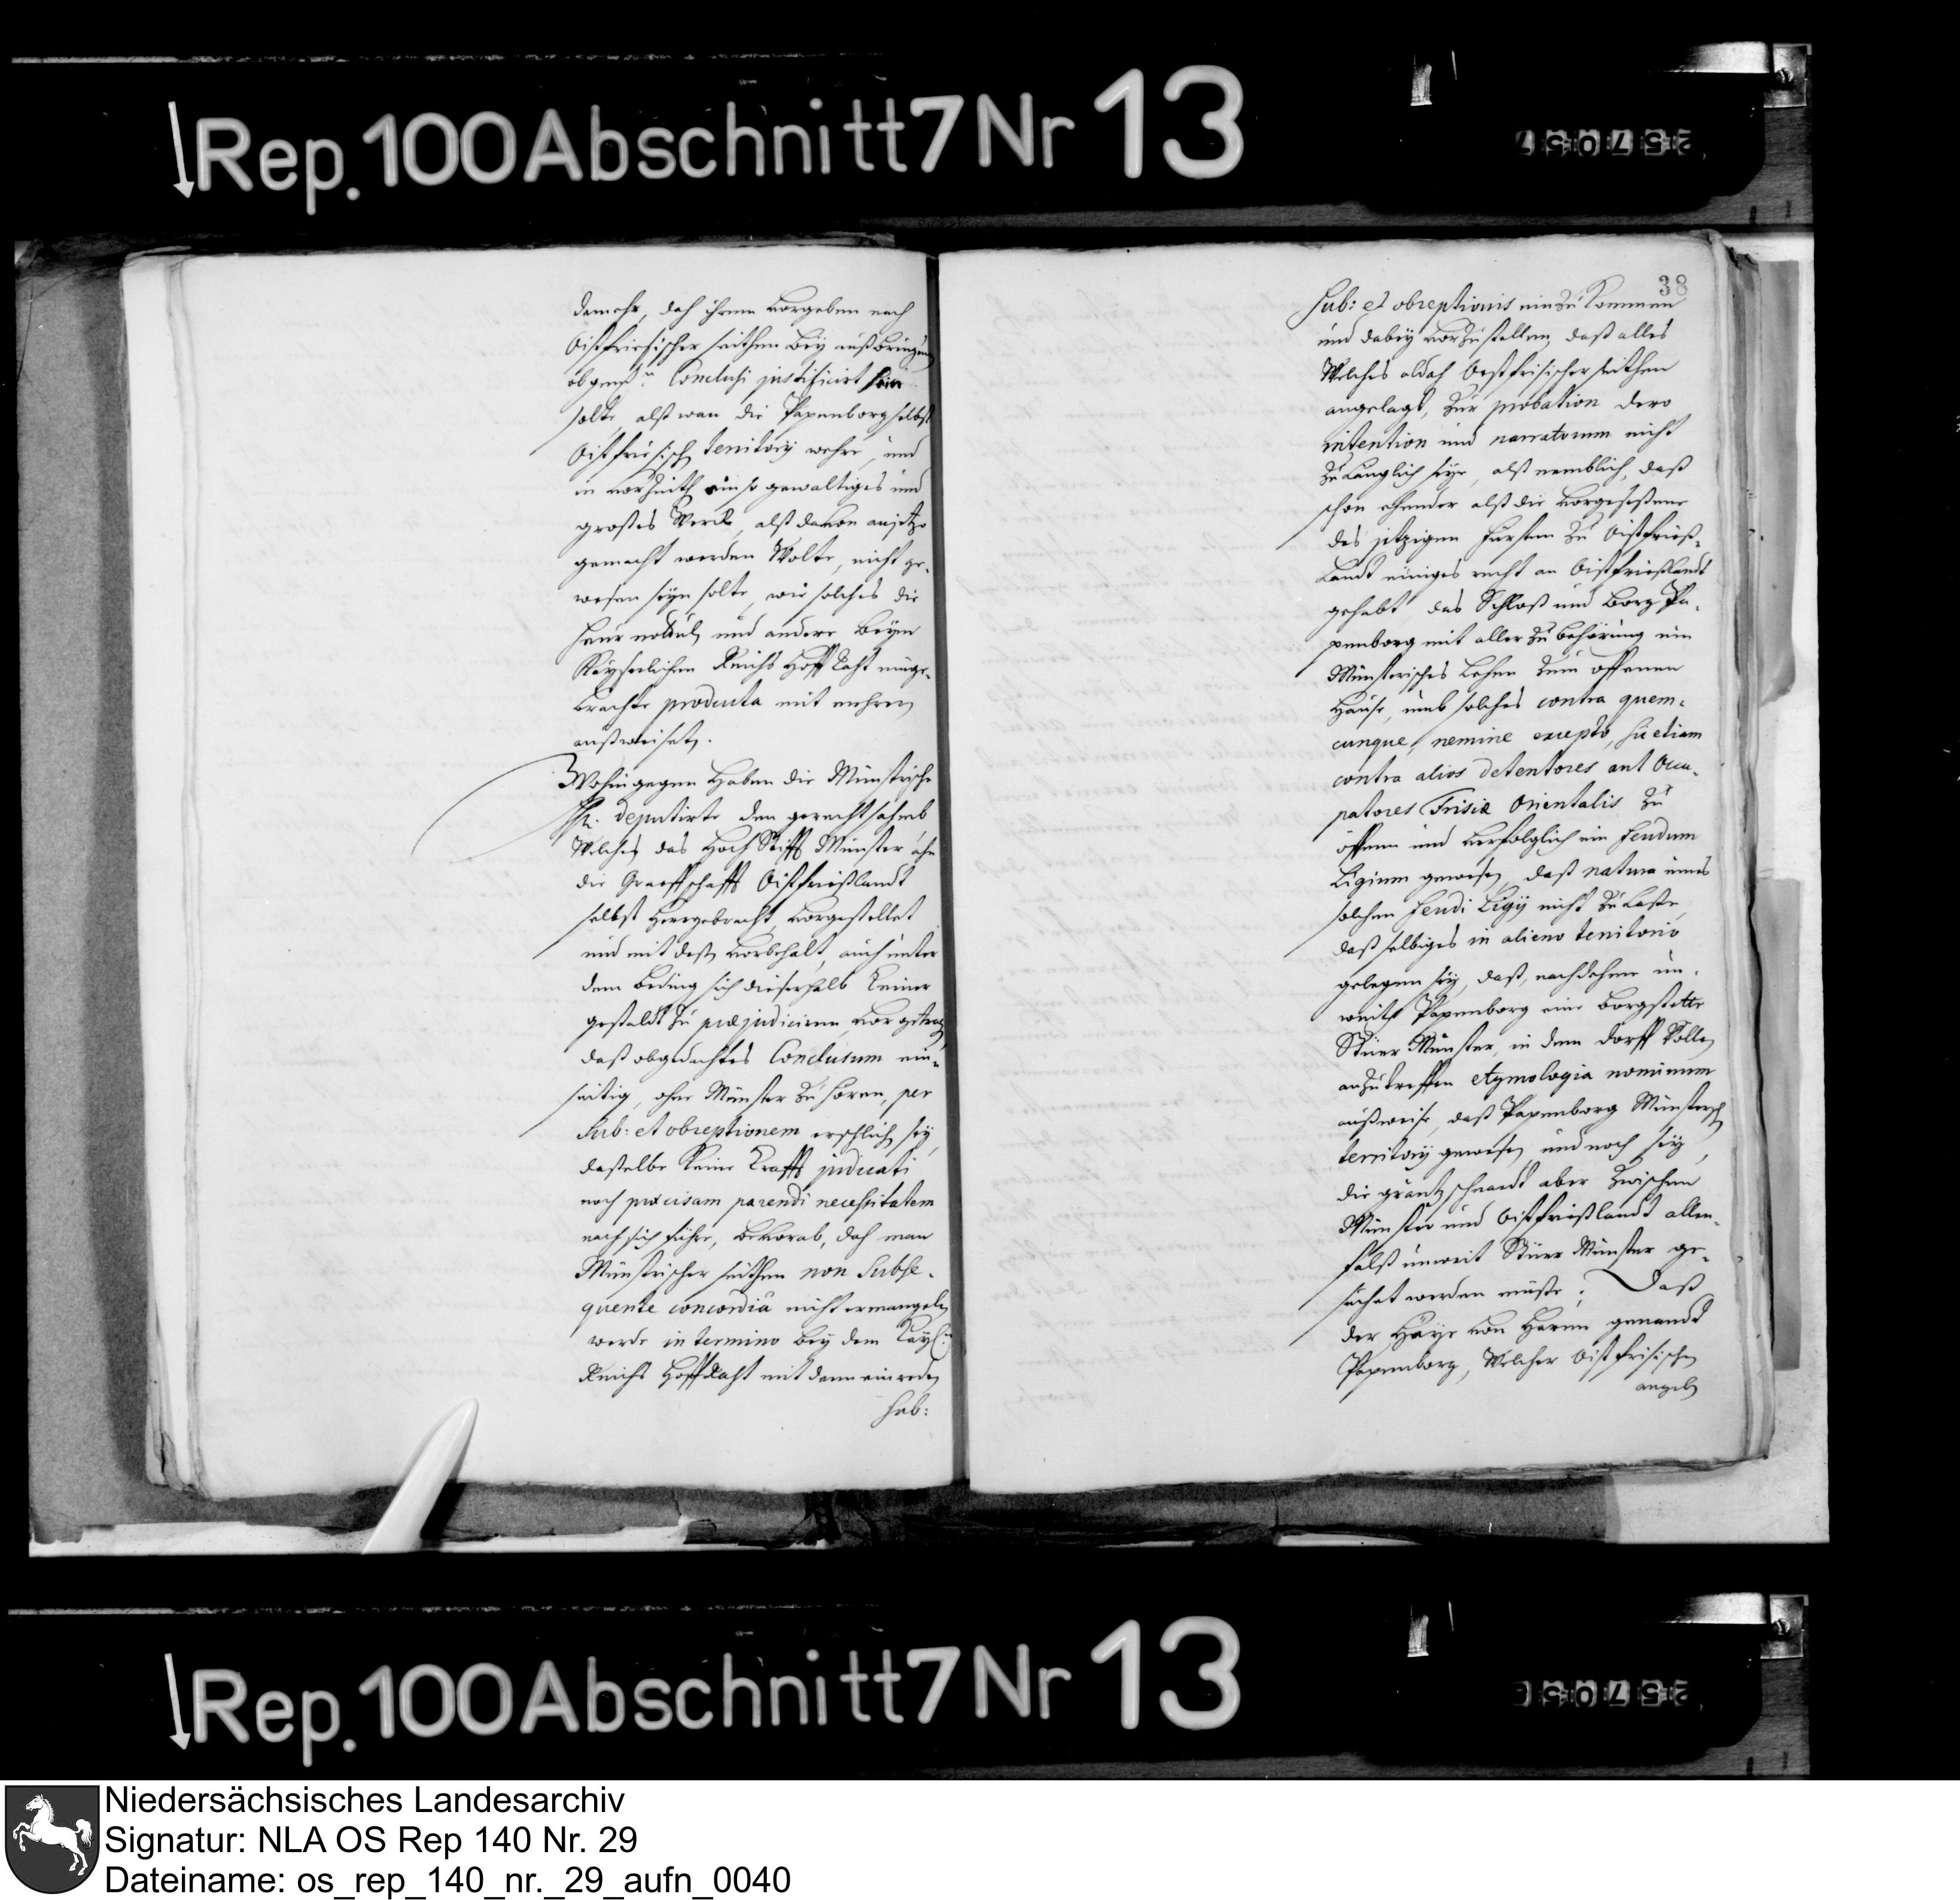 Rep. 100 Abschnitt 7 Nr 13
damehr, dah ihrem vorgeben nach
Oistfriesischer seithen bey außbringung
obgemt. Conclusi justificirt sein
solte, alß wan die Papenborg selbst
Oistfriesisch territory wehre, und
in vorzeith ein so gewaltiges und
großes Werck, alß davon anjetzo
gemacht werden Wolte, nicht ge-
wesen seyn solte, wie solches die
und andere beym
Kayserlichen Reichs Hoff Raht einge-
brachte producta mit mehren
außweiset.
Wohingegen haben die Münstrische
H. deputirte den gerechtsahmb
Welches das Hoch Stifft Münster ahn
die Graeffschafft Oistfrießlandt
selbst hergebracht, vorgestellet
und mit dem vorbehalt, auch unter
dem beding sich dieserhalb keiner
gestaldt zu præjudiciren, vorgetragen
daß obgedachtes Conclusum ein-
seitig, ohne Münster zu hören, per
Sub: et obreptionem erschlich sey,
daßelbe keine Krafft judicati
noch præcisam parendi necessitatem
nach sich führe, bevorab, dah man
Münstrischer seithen non Subse-
quente concordiâ nicht ermangeln
werde in termino bey dem Kayl.
Reichs Hoff Raht mit denen einreden
Sub:
38
Sub: et obreptionis einzukommen
und dabey vorzustellen, daß alles
Welches aldah Oestfrisischer seithen
angelagt, zur probation dero
intention und narratorum nicht
zulänglich seye, alß nemblich, daß
schon ehender alß die vorgeseßene
des jetzigen Fürsten zu Oistfrieß-
Landt einiges recht an Oistfrießlandt
gehabt, das Schloß und borg Pa-
penborg mit aller zubehörung ein
Münsterisches Lehen zum offenen
Hause, umb solches contra quem-
cunque, nemine excepto, sic etiam
contra alios detentores aut Occu-
patores Frisiæ Orientalis zu
öffnen und verfolglich ein feudum
Ligium gewesen, daß natura eines
solchen feudi Ligii nicht zulaste,
daß selbiges in alieno territorio
gelegen sey, daß, nachdehme un-
weith Papenborg eine borgstette
Stüer Münster, in dem dorff Völlen
anzutreffen etymologia nominum
außweise, daß Papenborg Münstersch
territory gewesen und noch sey,
die gräntzscheidt aber zwischen
Münster und Oistfrießlandt allen-
falß unweit Stüer Münster ge-
suchet werden müste; Daß
der Häye von Haren genandt
Papenborg, Welcher Oistfrisischen
angeb
Rep. 100 Abschnitt 7 Nr 13
Niedersächsisches Landesarchiv
Signatur: NLA OS Rep 140 Nr. 29
Dateiname: os_rep_140_nr._29_aufn_0040